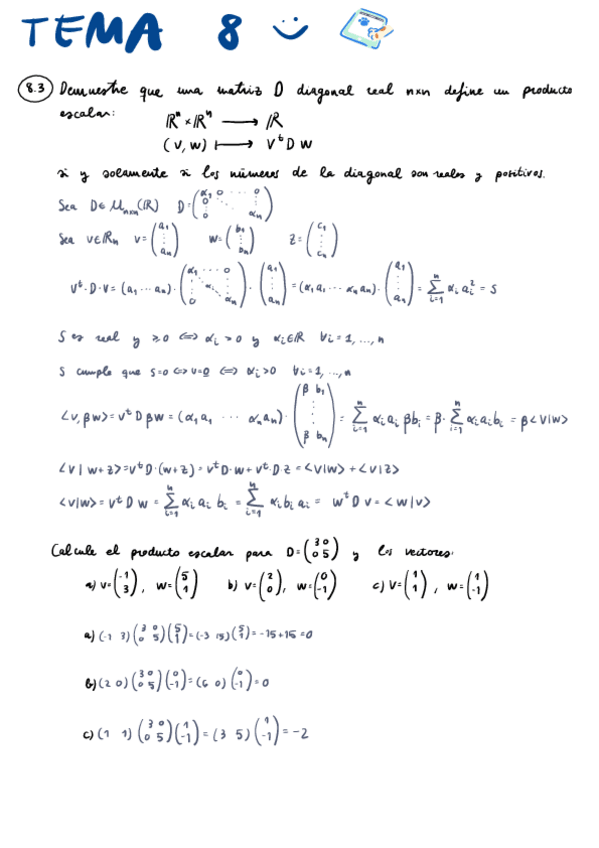 TEMA 8
8.3 Demuestre que una matriz D diagonal real nxn define un producto
escalar: ℝⁿ × ℝⁿ ⟶ ℝ
(v, w) ⟼ vᵗ D w
si y solamente si los números de la diagonal son reales y positivos.
Sea D ∈ Mₙₓₙ(ℝ) D = (α₁ 0 ··· 0 / 0 ⋱ ⋮ / 0 αₙ)
Sea v∈ℝₙ v = (a₁ ⋮ aₙ) w = (b₁ ⋮ bₙ) z = (c₁ ⋮ cₙ)
vᵗ·D·v = (a₁ ··· aₙ)·(α₁ ··· 0 ⋮ αᵢ ⋮ 0 αₙ)·(a₁ ⋮ aₙ) = (α₁a₁ ··· αₙaₙ)·(a₁ ⋮ aₙ) = Σⁿᵢ₌₁ αᵢaᵢ² = s
s es real y ≥0 ⟺ αᵢ >0 y αᵢ∈ℝ ∀i=1, ..., n
s cumple que s=0 ⟺ v=0 ⟺ αᵢ>0 ∀i=1, ..., n
<v, βw> = vᵗ D βw = (α₁a₁ ··· αₙaₙ)·(β b₁ ⋮ β bₙ) = Σⁿᵢ₌₁ αᵢaᵢ βbᵢ = β·Σⁿᵢ₌₁ αᵢaᵢbᵢ = β<v|w>
<v|w+z> = vᵗD·(w+z) = vᵗD·w + vᵗ·D·z = <v|w> + <v|z>
<v|w> = vᵗ D w = Σⁿᵢ₌₁ αᵢ aᵢ bᵢ = Σⁿᵢ₌₁ αᵢ bᵢ aᵢ = wᵗ D v = <w|v>
Calcule el producto escalar para D = (3 0 / 0 5) y los vectores:
a) v=(-1 / 3), w=(5 / 1) b) v=(2 / 0), w=(0 / -1) c) v=(1 / 1), w=(1 / -1)
a) (-1 3)(3 0 / 0 5)(5 / 1) = (-3 15)(5 / 1) = -15+15=0
b) (2 0)(3 0 / 0 5)(0 / -1) = (6 0)(0 / -1) = 0
c) (1 1)(3 0 / 0 5)(1 / -1) = (3 5)(1 / -1) = -2